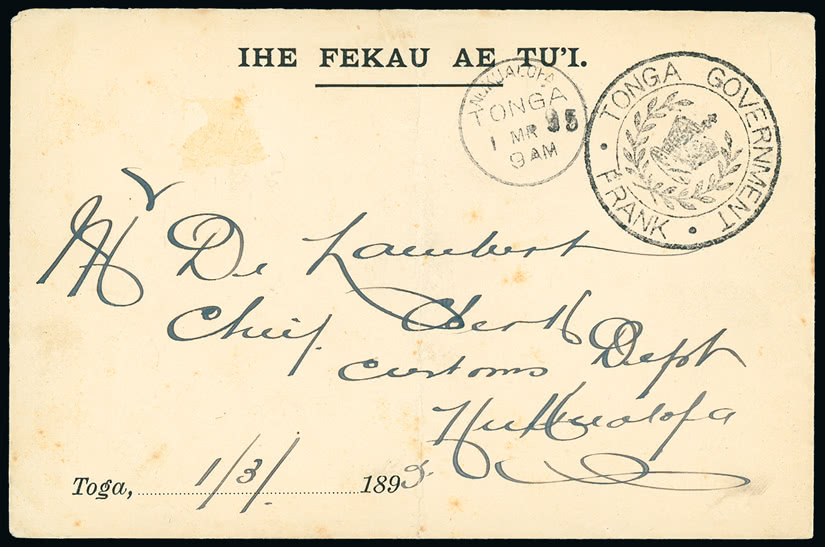 IHE FEKAU AE TU'I.
NUKUALOFA
TONGA
1 MR 95
9 AM
• TONGA GOVERNMENT •
FRANK
Mr De Lambert
Chief Clerk
Customs Dept
Nukualofa
Toga, 1/3/ 1895